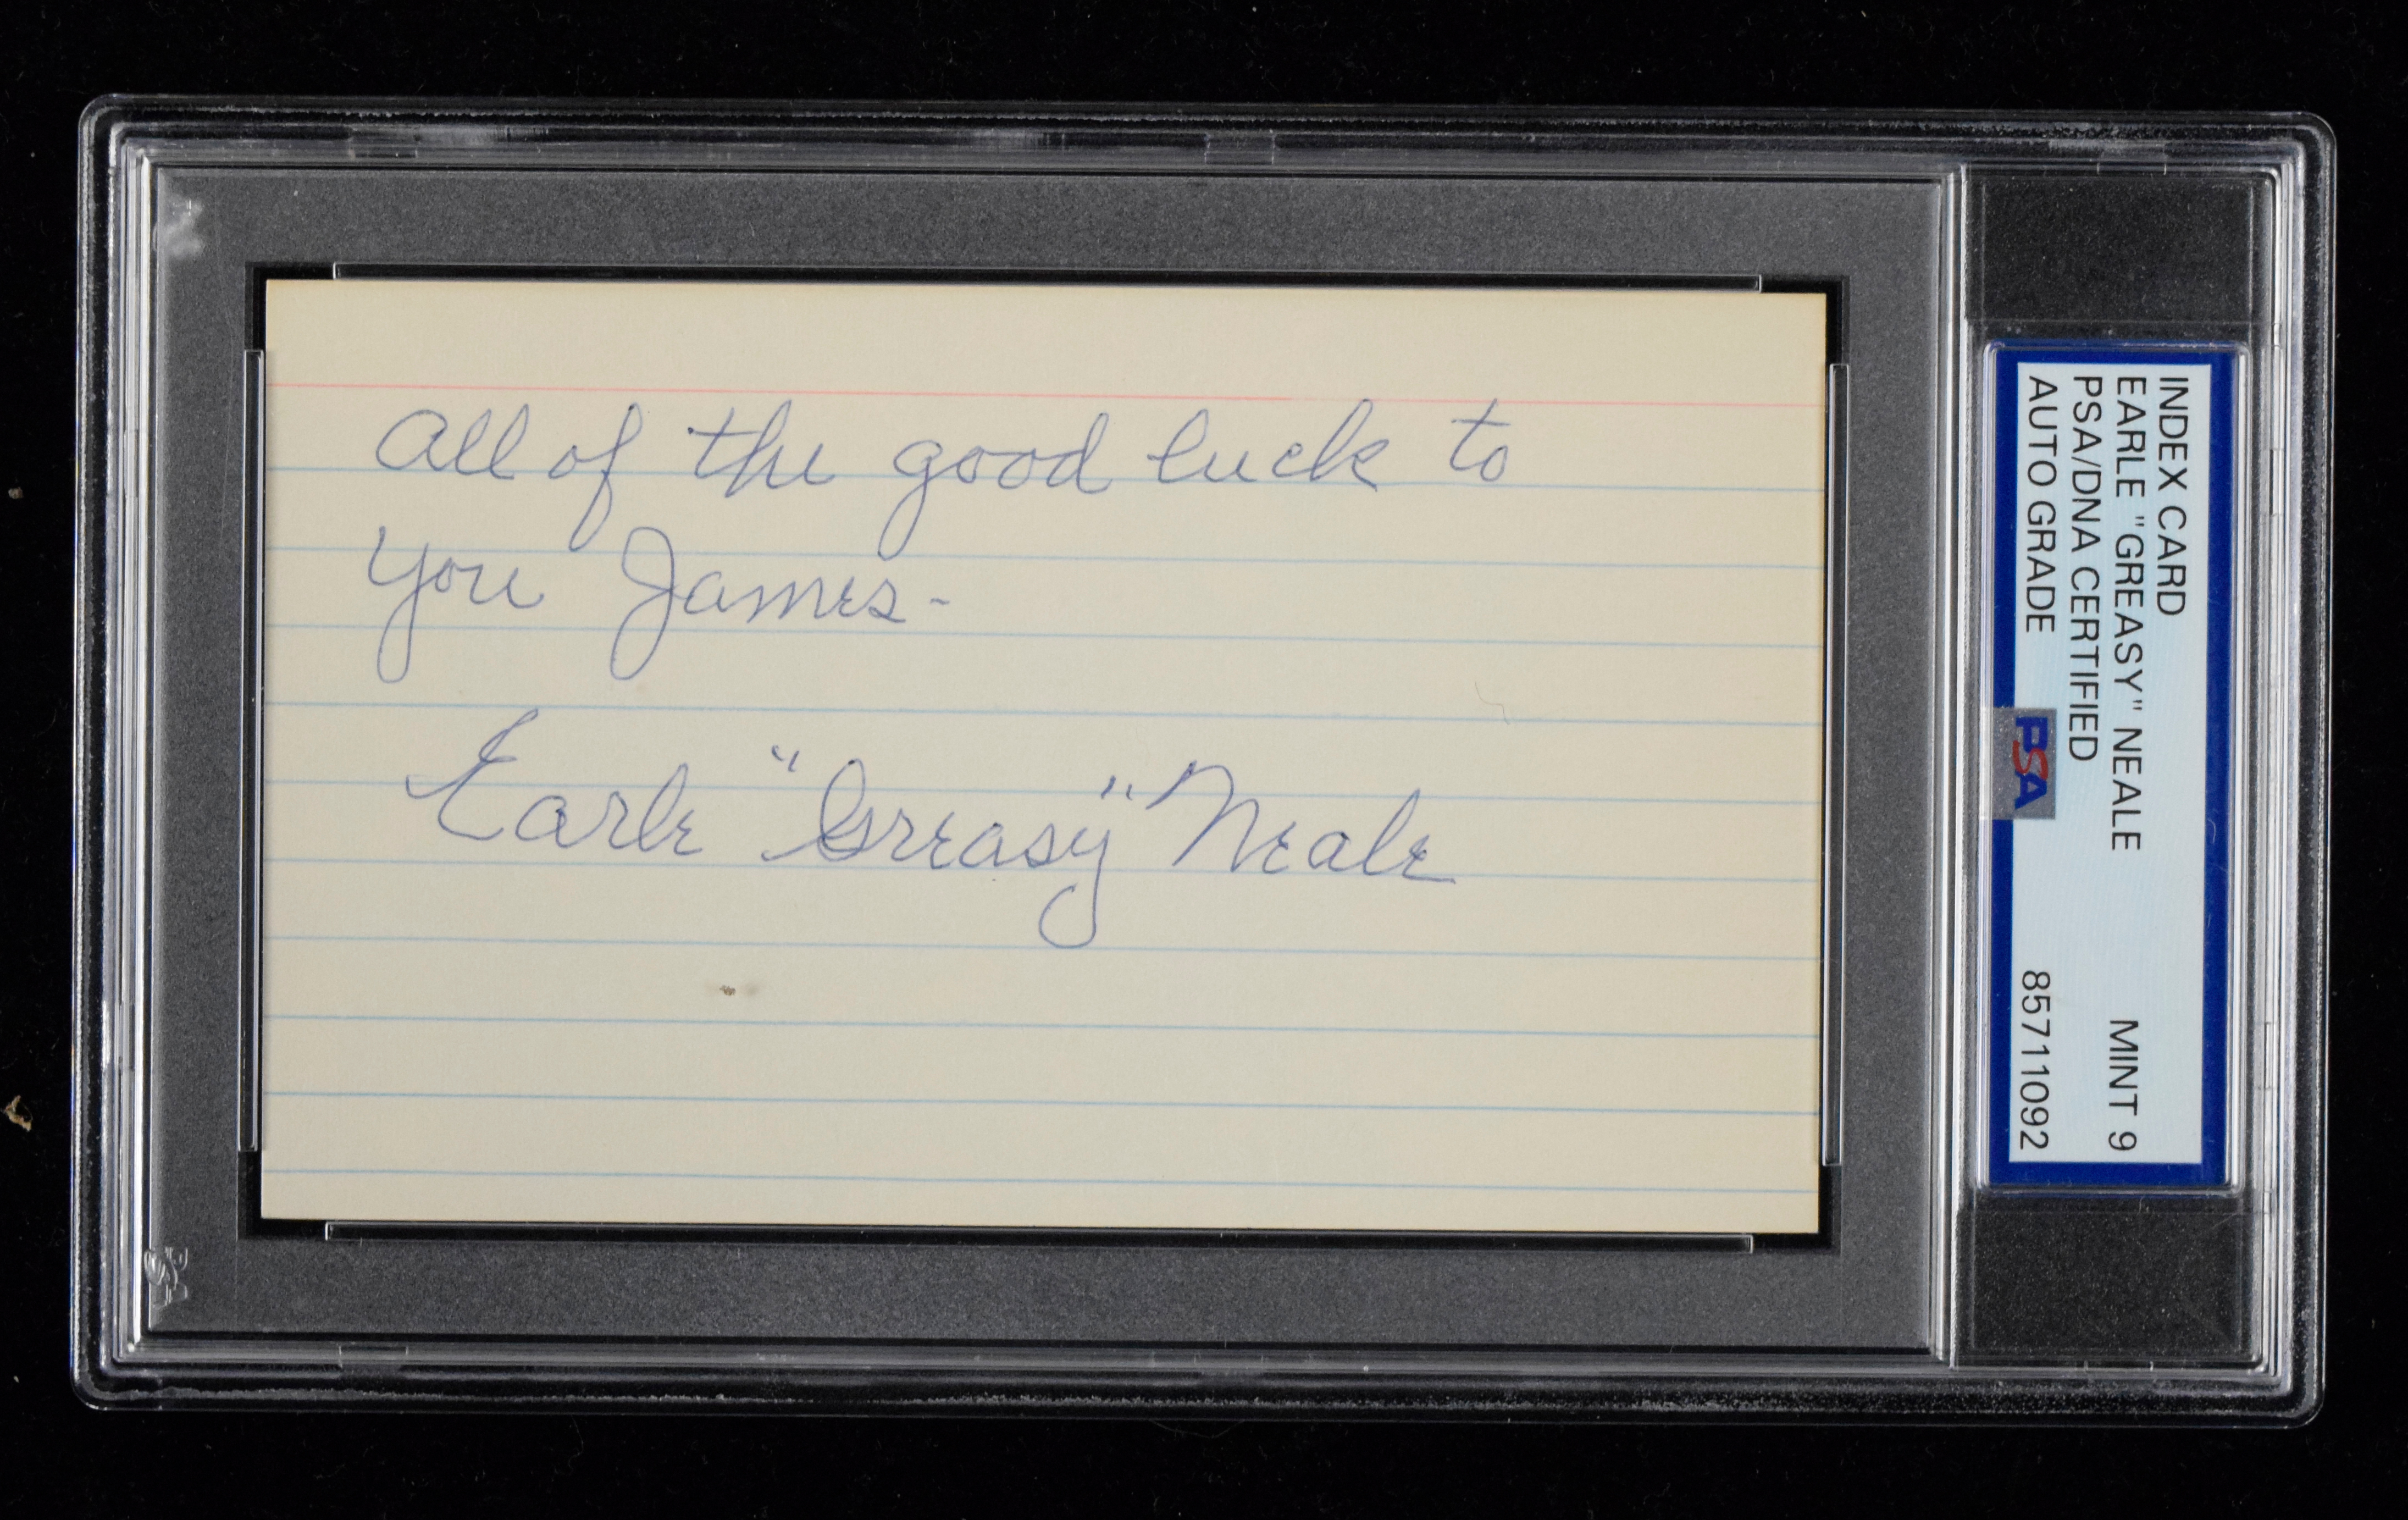 All of the good luck to
you James-
Earle "Greasy" Neale
INDEX CARD
EARLE "GREASY" NEALE MINT 9
PSA/DNA CERTIFIED
AUTO GRADE 85711092
PSA